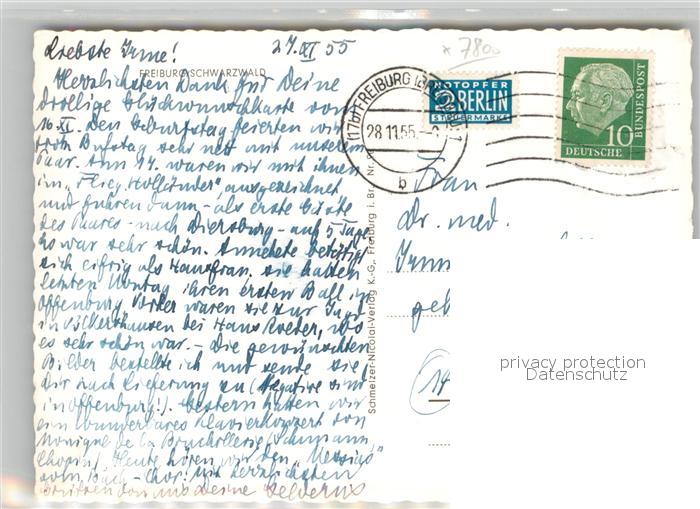 Liebste Irme!
27.XI 55
* 7800
FREIBURG/SCHWARZWALD
Herzlichsten Dank für Deine
drollige Glückwunschkarte von
16.XI. Den Geburtstag feierten wir
trotz Bußtag sehr nett mit unserem
Paar. Am 17. waren wir mit ihnen
im "Flieg. Holländer", ausgezeichnet
und fuhren dann - als erste Gäste
des Paares - nach Diersburg - auf 5 Tage
Es war sehr schön. Annchete betätigt
sich eifrig als Hausfrau. Sie hatten
letzten Montag ihren ersten Ball in
Offenburg. Vorher waren sie zur Jagd
in Volkertshausen bei Hans Roeder, wo
es sehr schön war. - Die gewünschten
Bilder bestellte ich und sende sie
Dir nach Lieferung zu (Negative sind
in Offenburg!). Gestern hatten wir
ein wunderbares Klavierkonzert von
Monique de la Bruchollerie, Schumann
Chopin). Heute hören wir den "Messias"
vom Bach-Chor. Mit herzlichsten
Grüßen von uns Deine
Schmelzer-Nicolai-Verlag K.-G., Freiburg i. Br.
(17b) FREIBURG (BREISGAU) 1
28.11.55.
b
NOTOPFER
2 BERLIN
STEUERMARKE
DEUTSCHE
BUNDESPOST
10
Frau
Dr. med.
geb
(14
privacy protection
Datenschutz